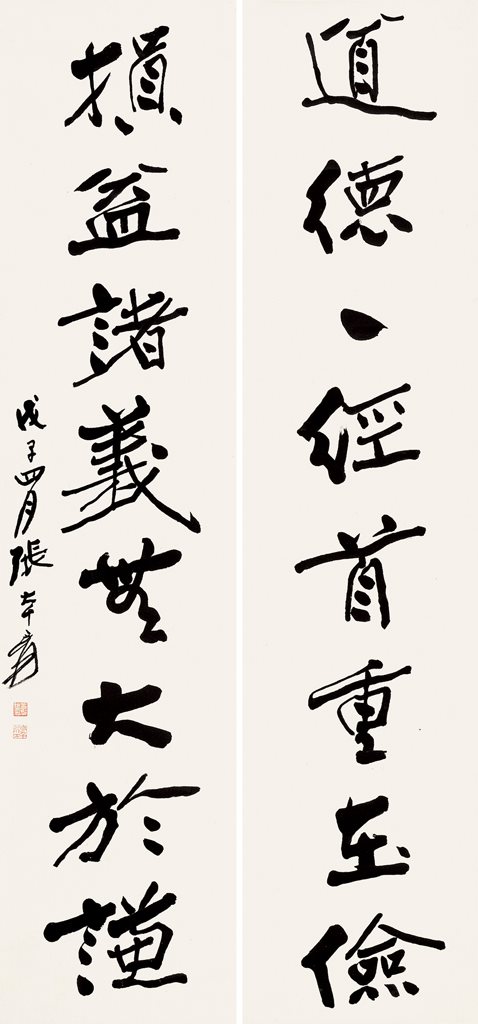 道德一經首重在儉
損益諸義無大於謙
戊子四月張大千爰